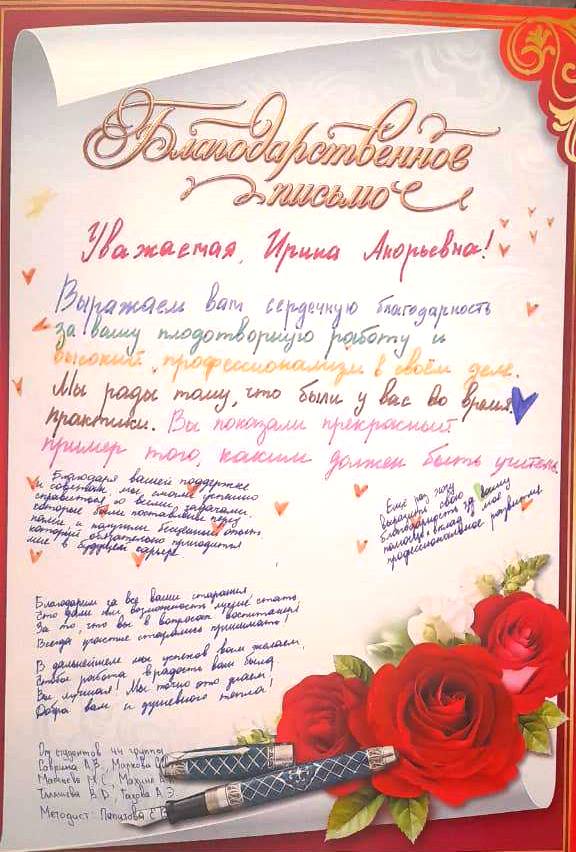 Благодарственное
письмо
Уважаемая, Ирина Анорьевна!
Выражаем вам сердечную благодарность
за вашу плодотворную работу и
высокий профессионализм в своём деле.
Мы рады тому, что были у вас во время
практики. Вы показали прекрасный
пример того, каким должен быть учитель.
Благодаря вашей поддержке
и советам, мы смогли успешно
справиться со всеми задачами,
которые были поставлены перед
нами, и получили бесценный опыт,
который обязательно пригодится
мне в будущей карьере.
Ещё раз хочу
выразить свою
благодарность за вашу
помощь и вклад в моё
профессиональное развитие.
Благодарим за все ваши старания,
Что дали нам возможность лучше стать,
За то, что вы в вопросах воспитания
Всегда участие старались принимать!
В дальнейшем мы успехов вам желаем,
Чтобы работа в радость вам была.
Вы лучшая! Мы точно это знаем,
Добра вам и душевного тепла!
От студентов 44 группы
А.В., Маркова
М.С., Махине
В.D., Газова А.Э.
Методист: Папизова Е.В.